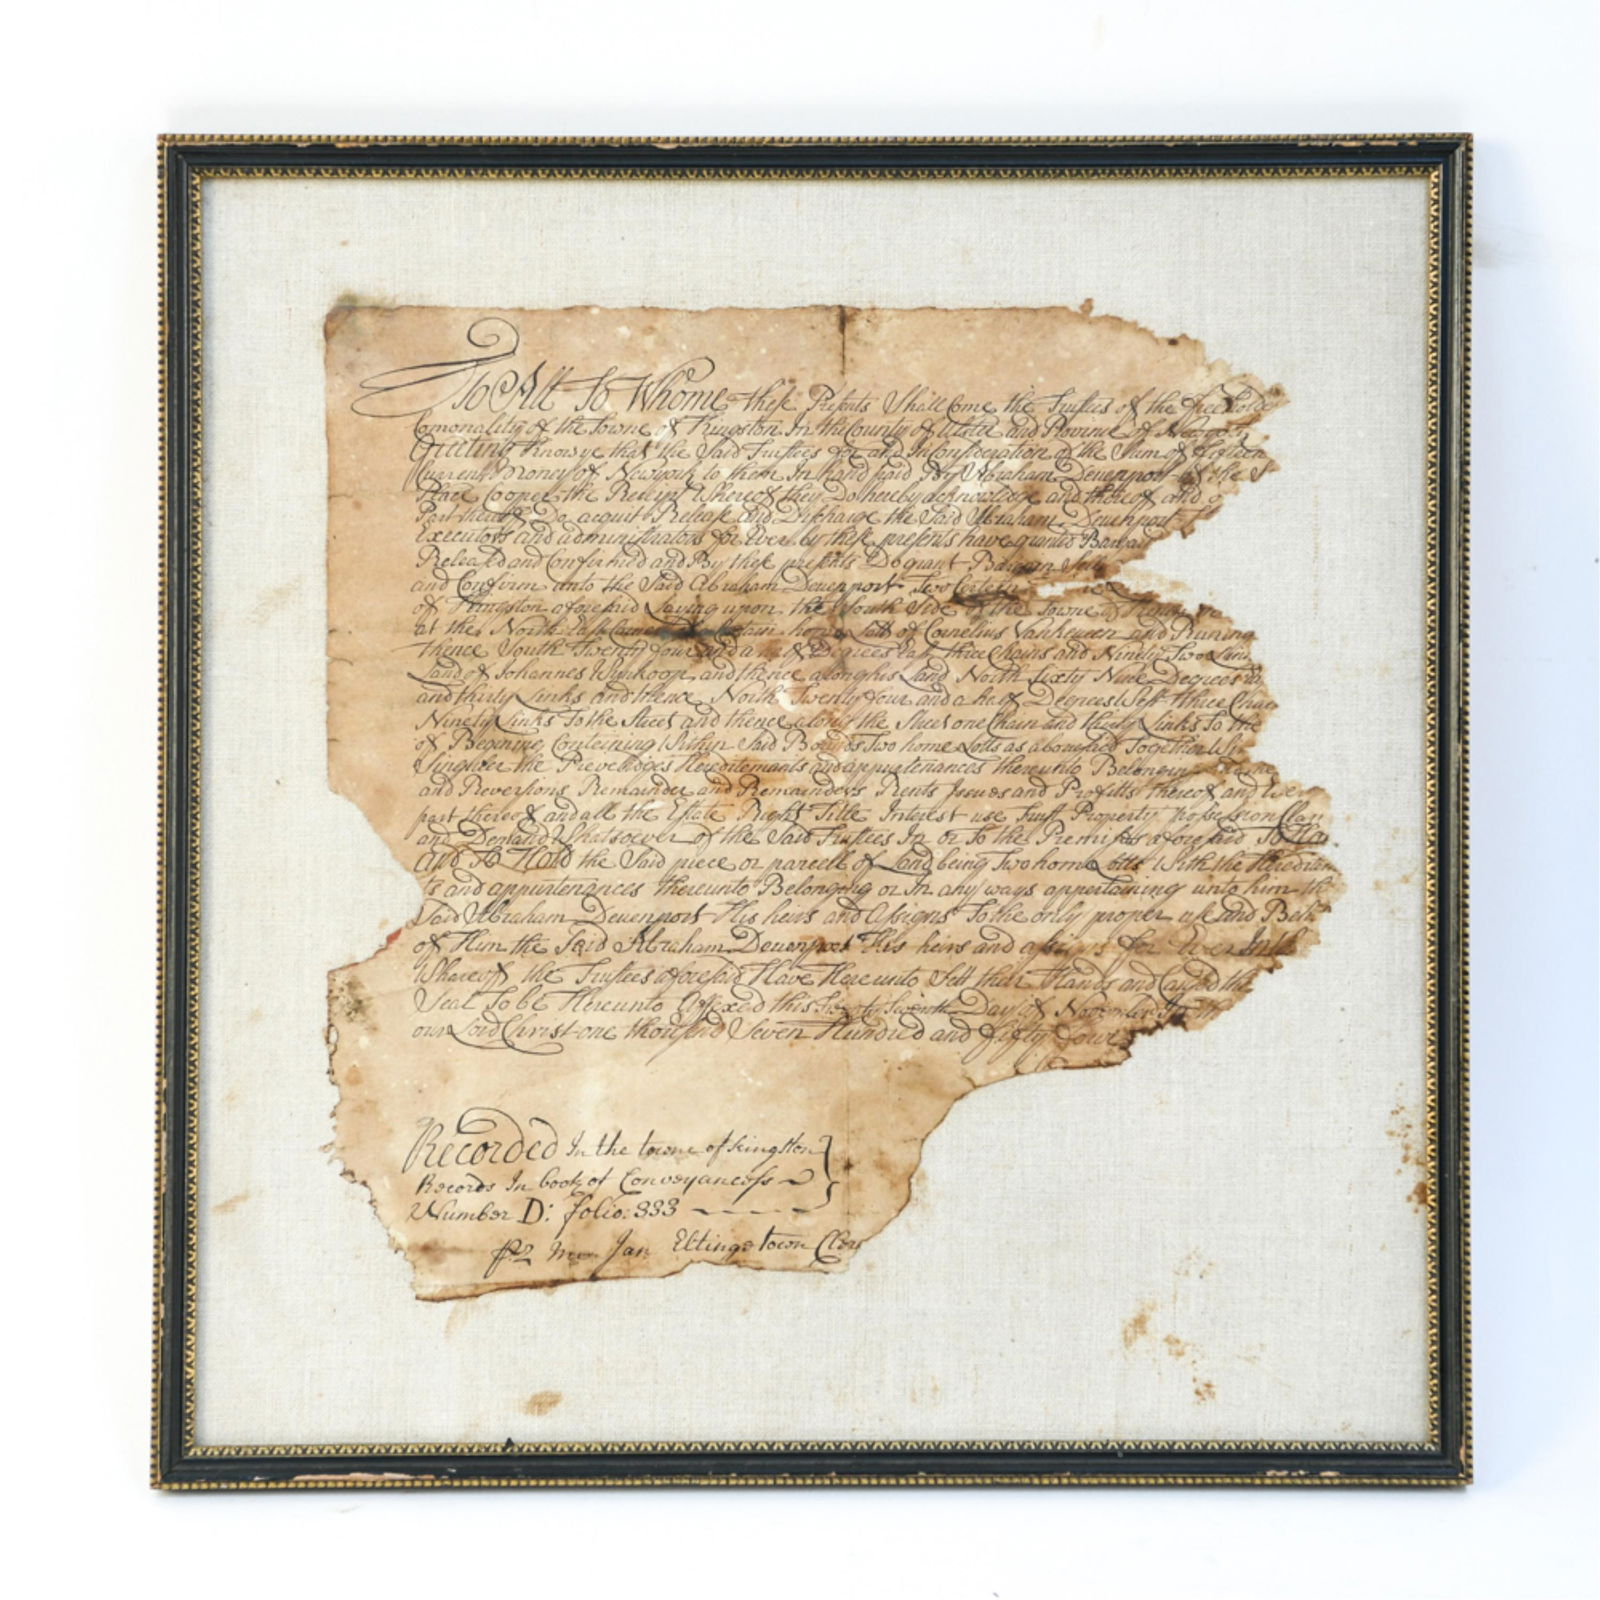 To All To Whome these Presents Shall Come the Trustees of the freeholde
Comonality of the Towne of Kingston In the County of Ulster and Province of Newyork
Greeting Know ye that the Said Trustees for and In Consideration of the Sum of fifteen
Current Money of Newyork to them In hand paid By Abraham Deuenport of the S
Place Cooper the Receipt Whereof they Do hereby acknowledge and thereof and
Part thereof Do acquit Release and Discharge the Said Abraham Deuenport
Executors and administrators for Ever by these presents have granted Bargain
Released and Confirmed and By these presents Do grant Bargain Sell
and Confirm unto the Said Abraham Deuenport Two Certain
of Kingston aforesaid Laying upon the South Side of the Towne
at the North East Corner Certain home Lott of Cornelius Vankeuren and Runing
thence South Twenty four and a half Degrees East three Chains and Ninety Two Links
Land of Johannes Wynkoop and thence along his Land North Sixty Nine Degrees
and thirty Links and thence North Twenty four and a half Degrees West three Chai
Ninety Links To the Street and thence along the Street one Chain and thirty Links to the
of Begening Conteining Within Said Bounds Two home Lotts as abovesaid Together Wi
Singuler the Previledges Hereditemants and appurtenances thereunto Belonging
and Reversions Remainder and Remainders Rents Issues and Profitts thereof and Every
part thereof and all the Estate Right Title Interest use Trust Property Possession Clam
and Demand Whatsoever of the Said Trustees In or To the Premises aforesaid To Hav
And To Hold the Said piece or parcell of Land being Two home Lotts With the Heredita
ts and appurtenances thereunto Belonging or In any ways appertaining unto him th
Said Abraham Deuenport His heirs and Assigns To the only proper use and Beh
of Him the Said Abraham Deuenport His heirs and assigns for Ever In
Whereof the Trustees aforesaid Have Hereunto Sett their Hands and Caused the
Seal To be Hereunto Affixed this Twenty Seventh Day of November In th
our Lord Christ one thousand Seven Hundred and fifty four
Recorded In the towne of kingston
Records In book of Conveyancess
Number D: folio: 333
Jan Eltinge town Cler